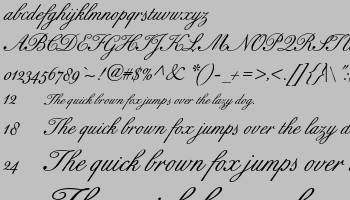 abcdefghijklmnopqrstuvwxyz
ABCDEFGHIJKLMNOPQRSTU
0123456789`~!@#$%^&*()-_+=>,<.[]{}/\|";
12 The quick brown fox jumps over the lazy dog.
18 The quick brown fox jumps over the lazy d
24 The quick brown fox jumps over
The quick brown